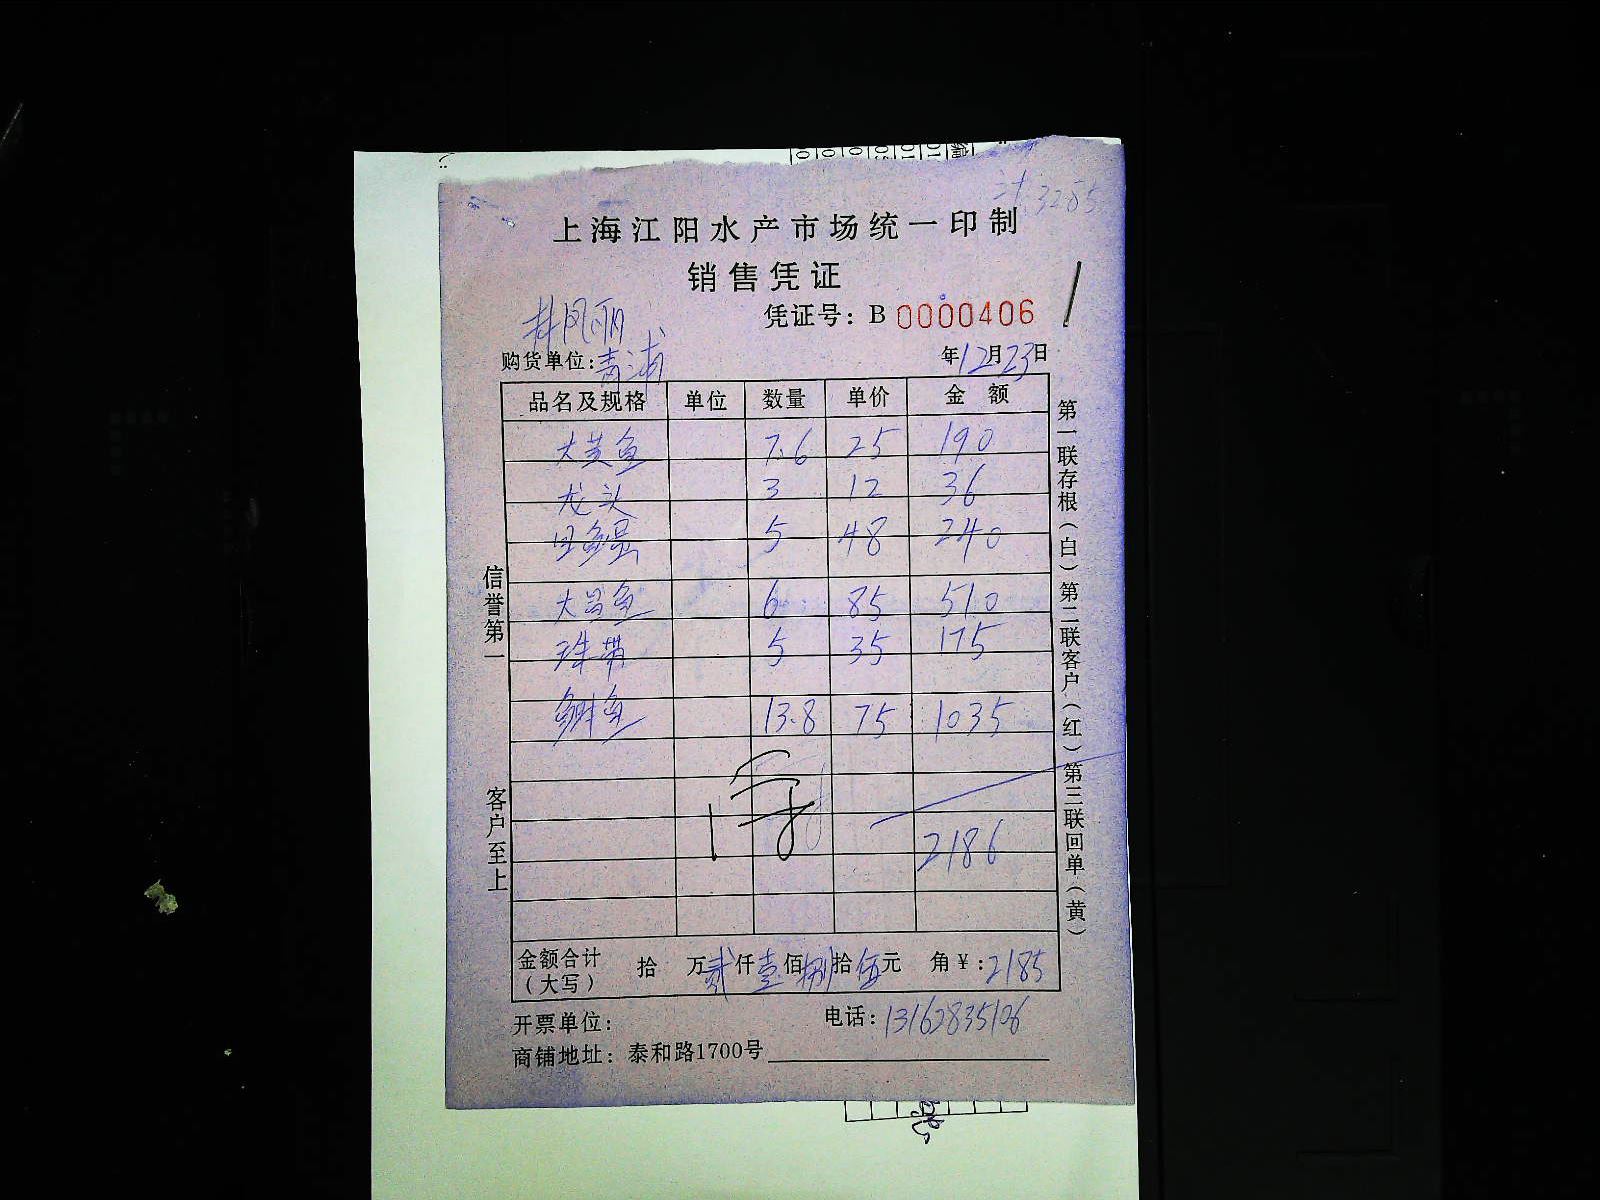 计:3285
上海江阳水产市场统一印制
销售凭证
凭证号：B 0000406
林凤丽
购货单位:青浦
年12月23日
品名及规格 单位 数量 单价 金额
大黄鱼 7.6 25 190
龙头 3 12 36
5 48 240
大鱼 6 85 510
珠带 5 35 175
13.8 75 1035
2186
金额合计（大写） 拾 万贰仟壹佰捌拾伍元 角￥:2185
开票单位:
电话:13162835106
商铺地址：泰和路1700号
信誉第一
客户至上
第一联存根（白）第二联客户（红）第三联回单（黄）